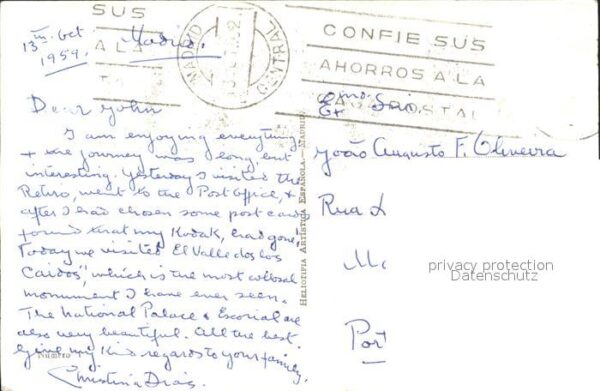 SUS
A LA
13th Oct
1959.
Madrid.
MADRID
CENTRAL
CONFIE SUS
AHORROS A LA
CAJA POSTAL
Dear John
I am enjoying everything
& the journey was long but
interesting. Yesterday I visited the
Retiro, went to the Post Office, &
after I had chosen some post cards
found that my Kodak, had gone.
Today we visited "El Valle de los
Caidos", which is the most colossal
monument I have ever seen.
The National Palace & Escorial are
also very beautiful. All the best.
Give my kind regards to your family.
Christina Dias
Número
HELIOTIPIA ARTÍSTICA ESPAÑOLA.—MADRID
Exmo. Snr.
João Augusto F. Oliveira
Rua d
M.
Port
privacy protection
Datenschutz